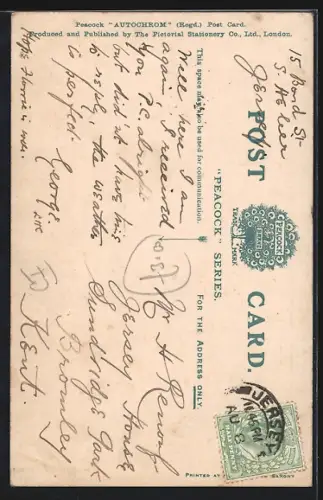 Peacock "AUTOCHROM" (Regd.) Post Card.
Produced and Published by The Pictorial Stationery Co., Ltd., London.
POST CARD.
"PEACOCK" SERIES.
TRADE MARK
PEACOCK
This space may also be used for communication.
FOR THE ADDRESS ONLY.
15 Bond St
St Helier
Jersey
Well here I am
again, I received
you P.C. alright
but didn't have time
to reply, the weather
is perfect.
George
Hope Florrie is well
Mr H Renouf
Jersey House
Sundridge Park
Bromley
Kent.
JERSEY
HALFPENNY
PRINTED AT